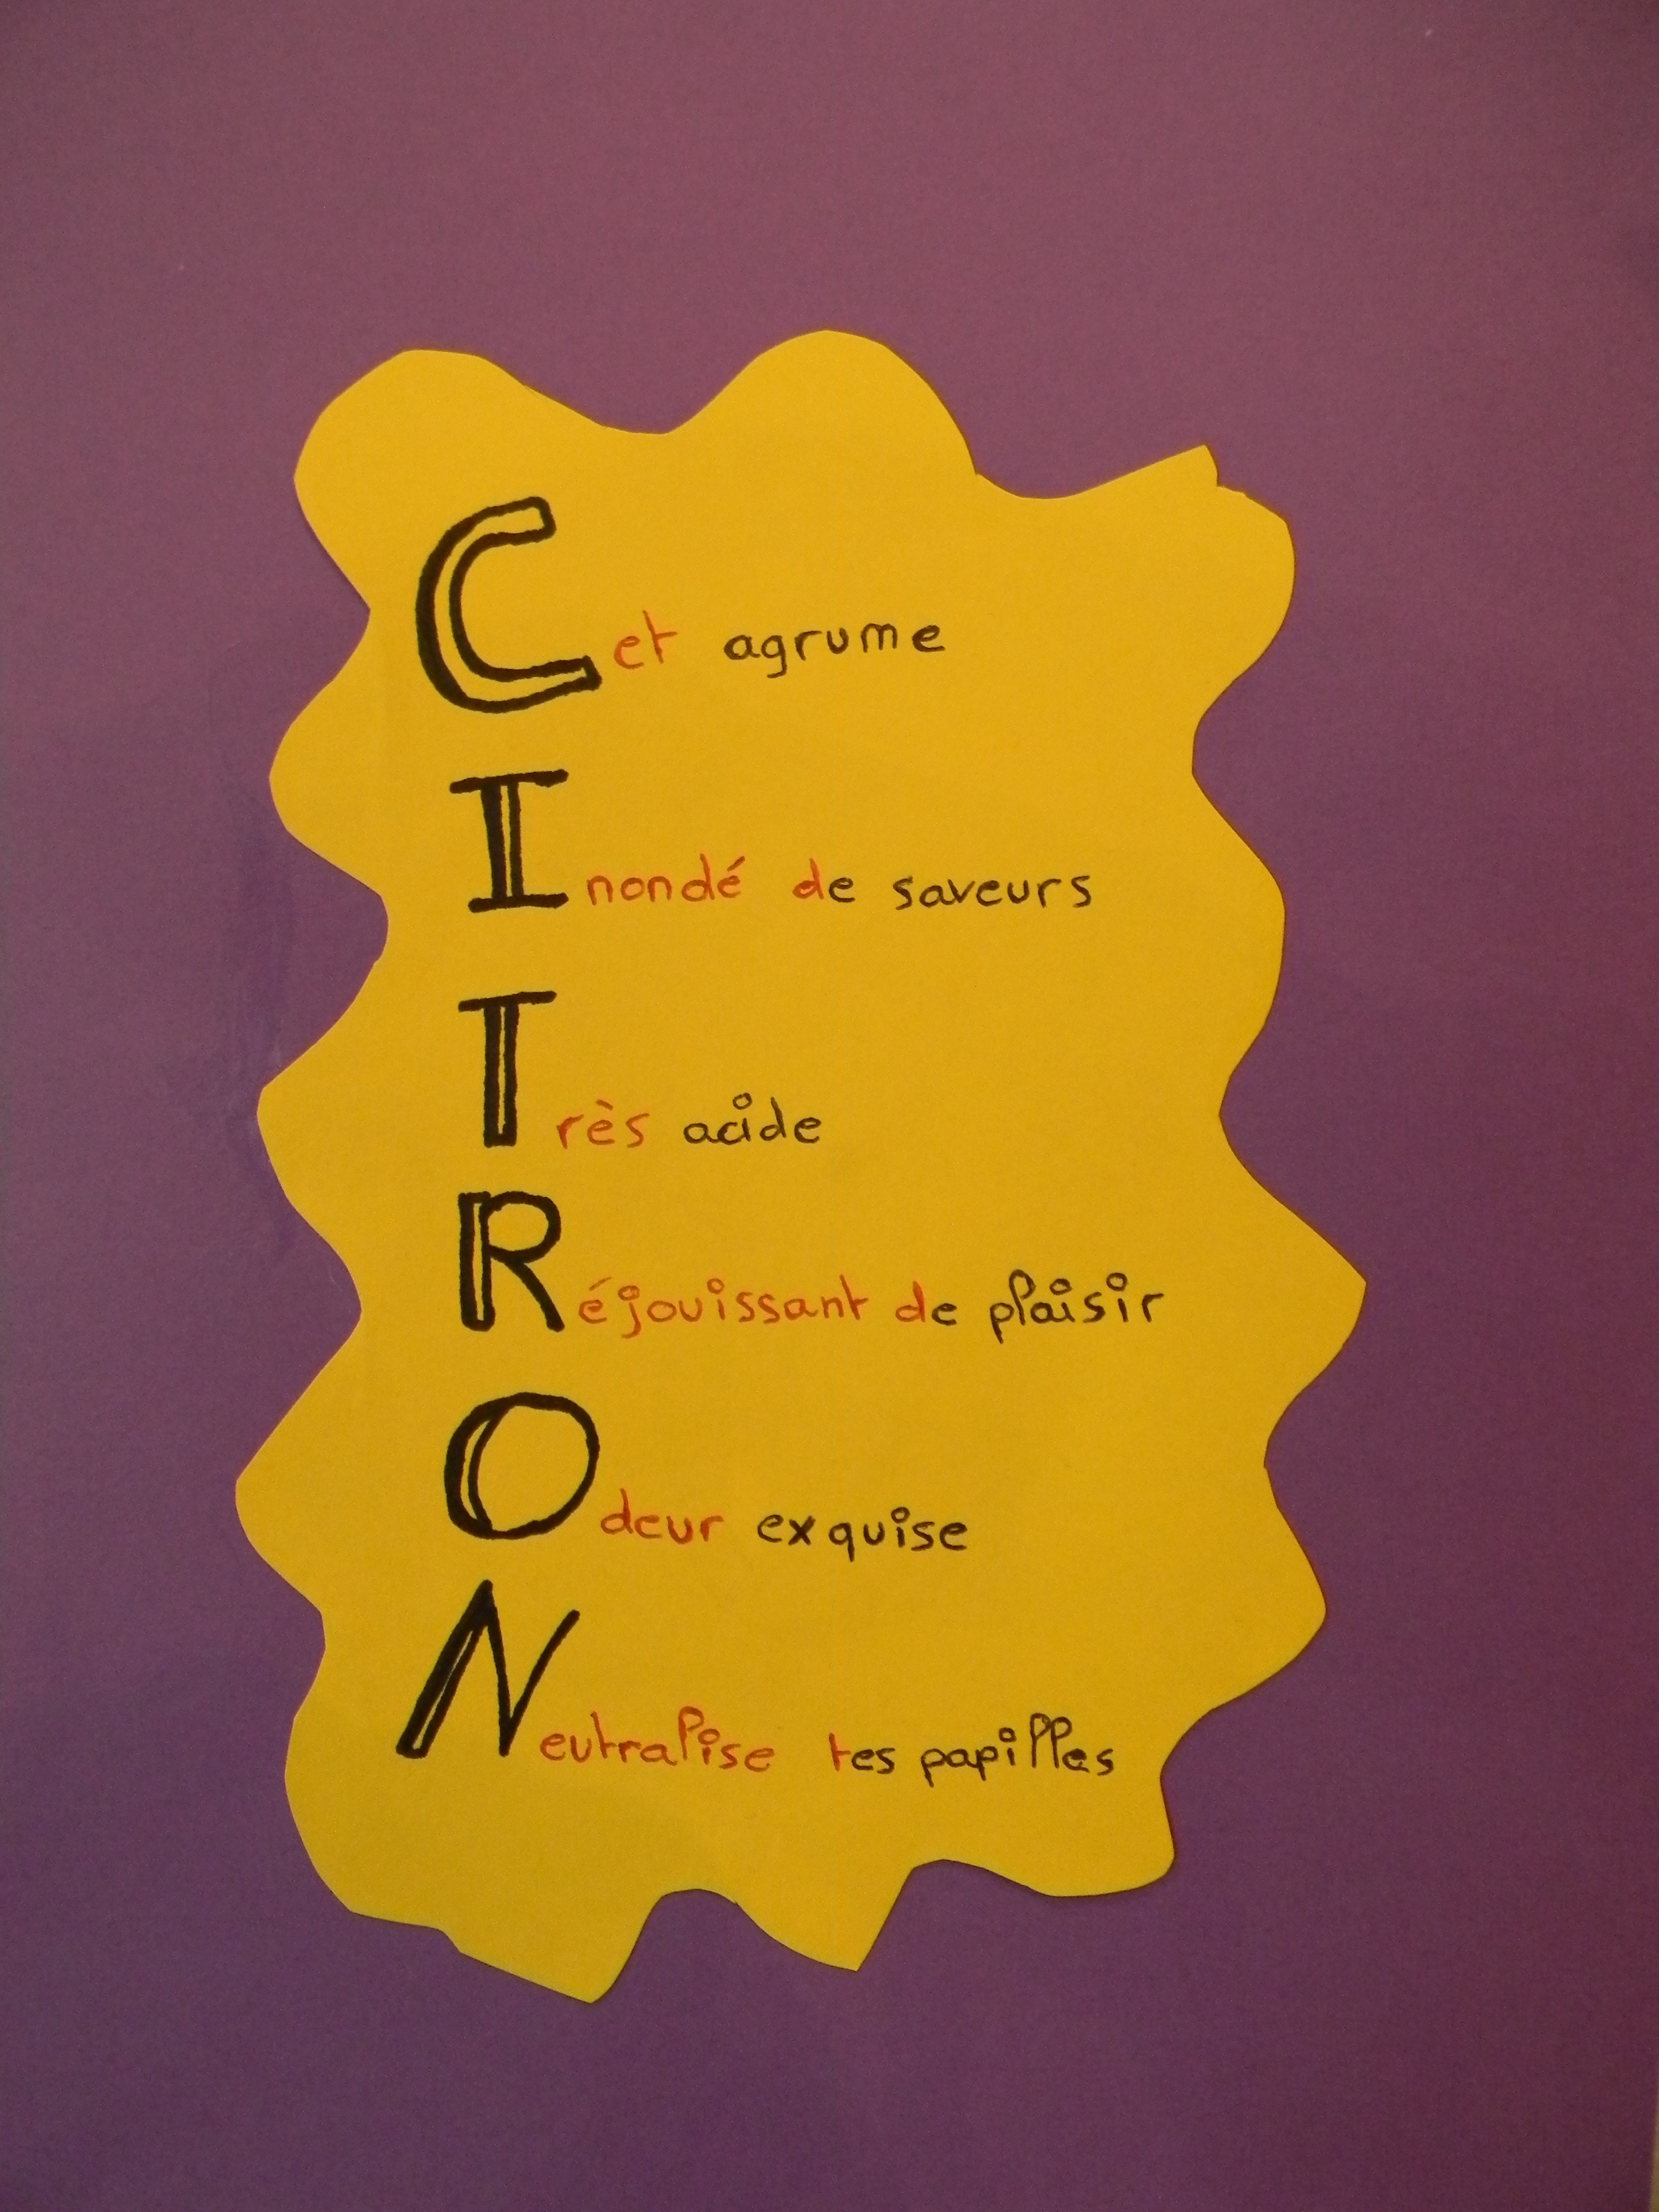 Cet agrume
Inondé de saveurs
Très acide
Réjouissant de plaisir
Odeur exquise
Neutralise tes papilles